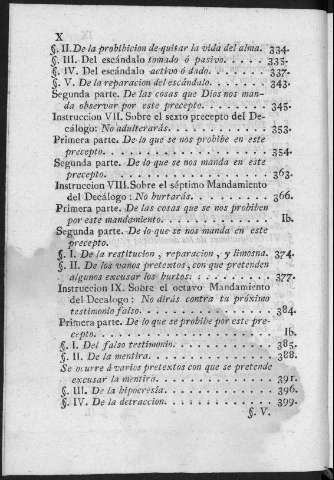 X
§. II. De la prohibicion de quitar la vida del alma. 334.
§. III. Del escándalo tomado ó pasivo. . . . . . 335.
§. IV. Del escándalo activo ó dado. . . . . . . . 337.
§. V. De la reparacion del escándalo. . . . . . . 343.
Segunda parte. De las cosas que Dios nos man-
da observar por este precepto. . . . . . . . . 345.
Instruccion VII. Sobre el sexto precepto del De-
cálogo: No adulterarás. . . . . . . . . . . . . 353.
Primera parte. De lo que se nos prohibe en este
precepto. . . . . . . . . . . . . . . . . . . . 354.
Segunda parte. De lo que se nos manda en este
precepto. . . . . . . . . . . . . . . . . . . . 363.
Instruccion VIII. Sobre el séptimo Mandamiento
del Decálogo: No hurtarás. . . . . . . . . . . 366.
Primera parte. De las cosas que se nos prohiben
por este mandamiento. . . . . . . . . . . . . . Ib.
Segunda parte. De lo que se nos manda en este
precepto.
§. I. De la restitucion, reparacion, y limosna. 374.
§. II. De los vanos pretextos, con que pretenden
algunos excusar los hurtos: . . . . . . . . . . 377.
Instruccion IX. Sobre el octavo Mandamiento
del Decalogo: No dirás contra tu próximo
testimonio falso. . . . . . . . . . . . . . . . 384.
Primera parte. De lo que se prohibe por este pre-
cepto. . . . . . . . . . . . . . . . . . . . . . Ib.
§. I. Del falso testimonio. . . . . . . . . . . . 385.
§. II. De la mentira. . . . . . . . . . . . . . . 388.
Se ocurre á varios pretextos con que se pretende
excusar la mentira. . . . . . . . . . . . . . . 391.
§. III. De la hipocresía. . . . . . . . . . . . . 396.
§. IV. De la detraccion. . . . . . . . . . . . . 399.
§. V.